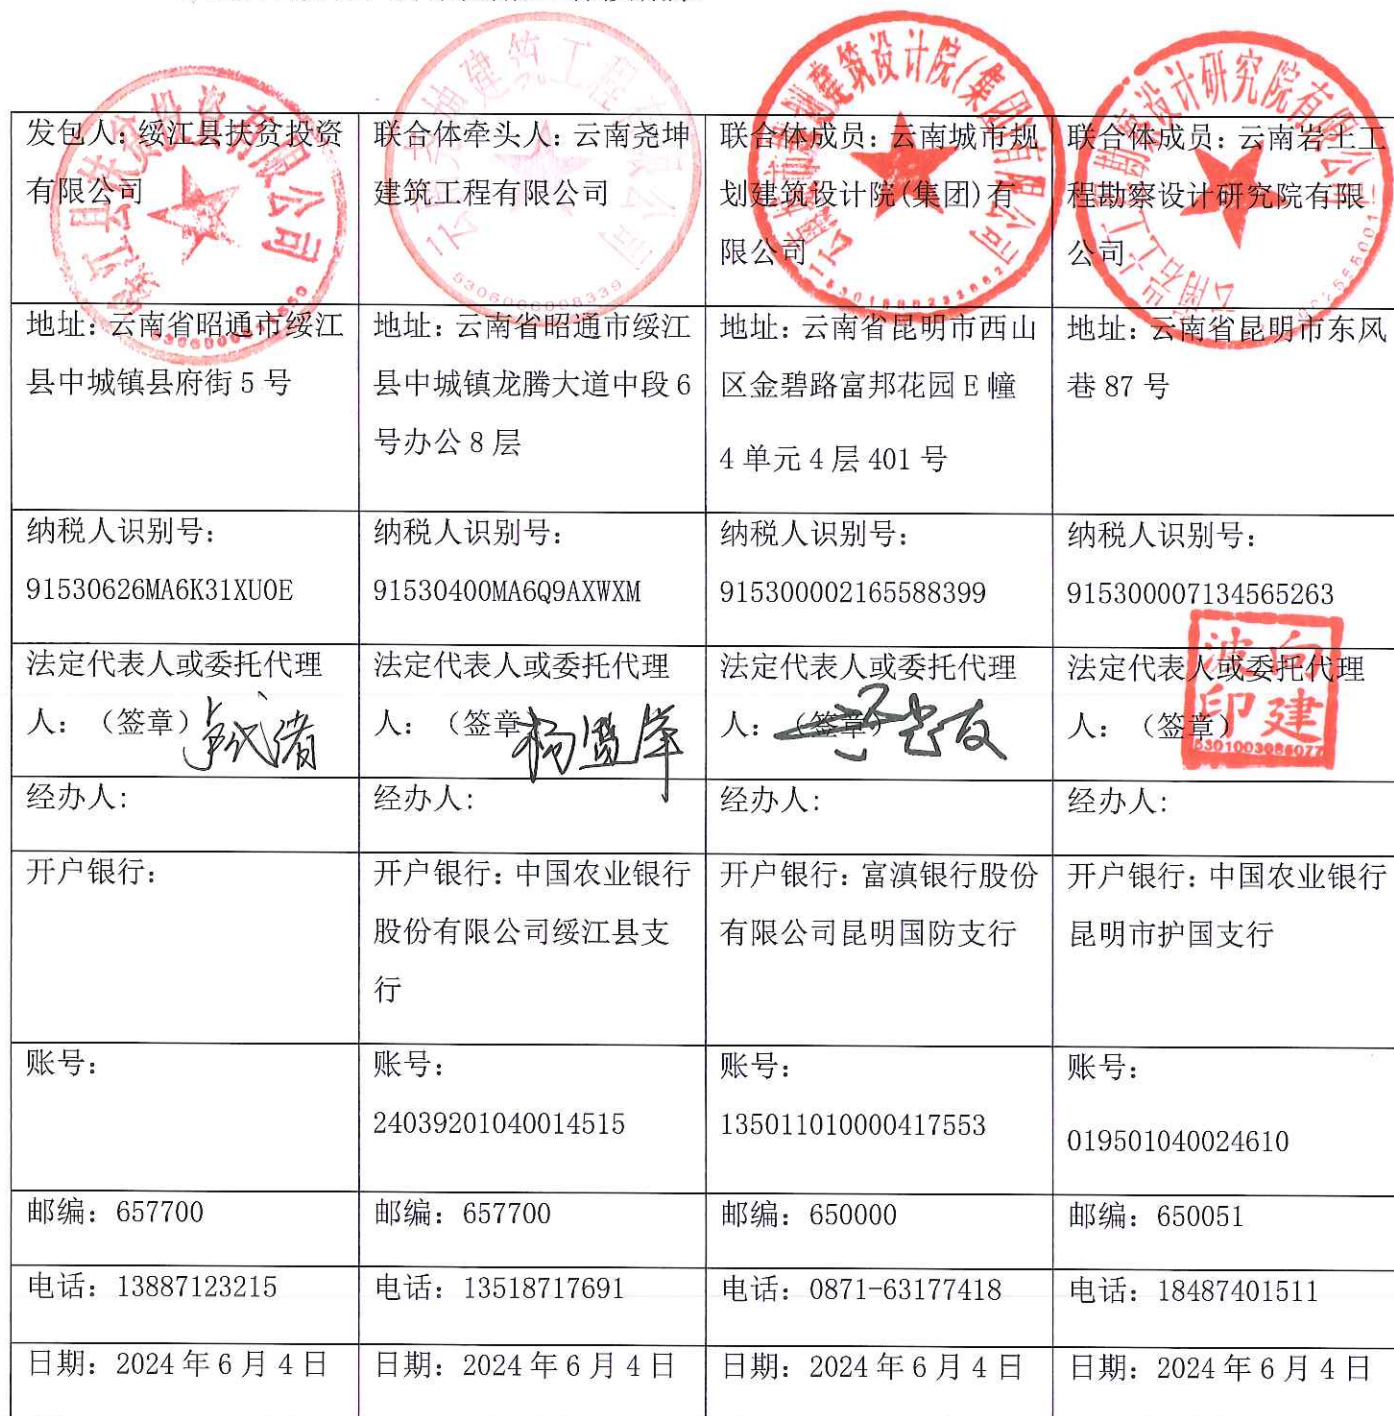 发包人：绥江县扶贫投资
有限公司
联合体牵头人：云南尧坤
建筑工程有限公司
联合体成员：云南城市规
划建筑设计院(集团)有
限公司
联合体成员：云南岩土工
程勘察设计研究院有限
公司
地址：云南省昭通市绥江
县中城镇县府街 5 号
地址：云南省昭通市绥江
县中城镇龙腾大道中段 6
号办公 8 层
地址：云南省昆明市西山
区金碧路富邦花园 E 幢
4 单元 4 层 401 号
地址：云南省昆明市东风
巷 87 号
纳税人识别号：
91530626MA6K31XU0E
纳税人识别号：
91530400MA6Q9AXWXM
纳税人识别号：
915300002165588399
纳税人识别号：
915300007134565263
法定代表人或委托代理
人：（签章）
法定代表人或委托代理
人：（签章
法定代表人或委托代理
人：（签章）
法定代表人或委托代理
人：（签章）
向建波印
经办人:
经办人:
经办人:
经办人:
开户银行：
开户银行：中国农业银行
股份有限公司绥江县支
行
开户银行：富滇银行股份
有限公司昆明国防支行
开户银行：中国农业银行
昆明市护国支行
账号：
账号：
24039201040014515
账号：
135011010000417553
账号：
019501040024610
邮编：657700
邮编：657700
邮编：650000
邮编：650051
电话：13887123215
电话：13518717691
电话：0871-63177418
电话：18487401511
日期：2024 年 6 月 4 日
日期：2024 年 6 月 4 日
日期：2024 年 6 月 4 日
日期：2024 年 6 月 4 日